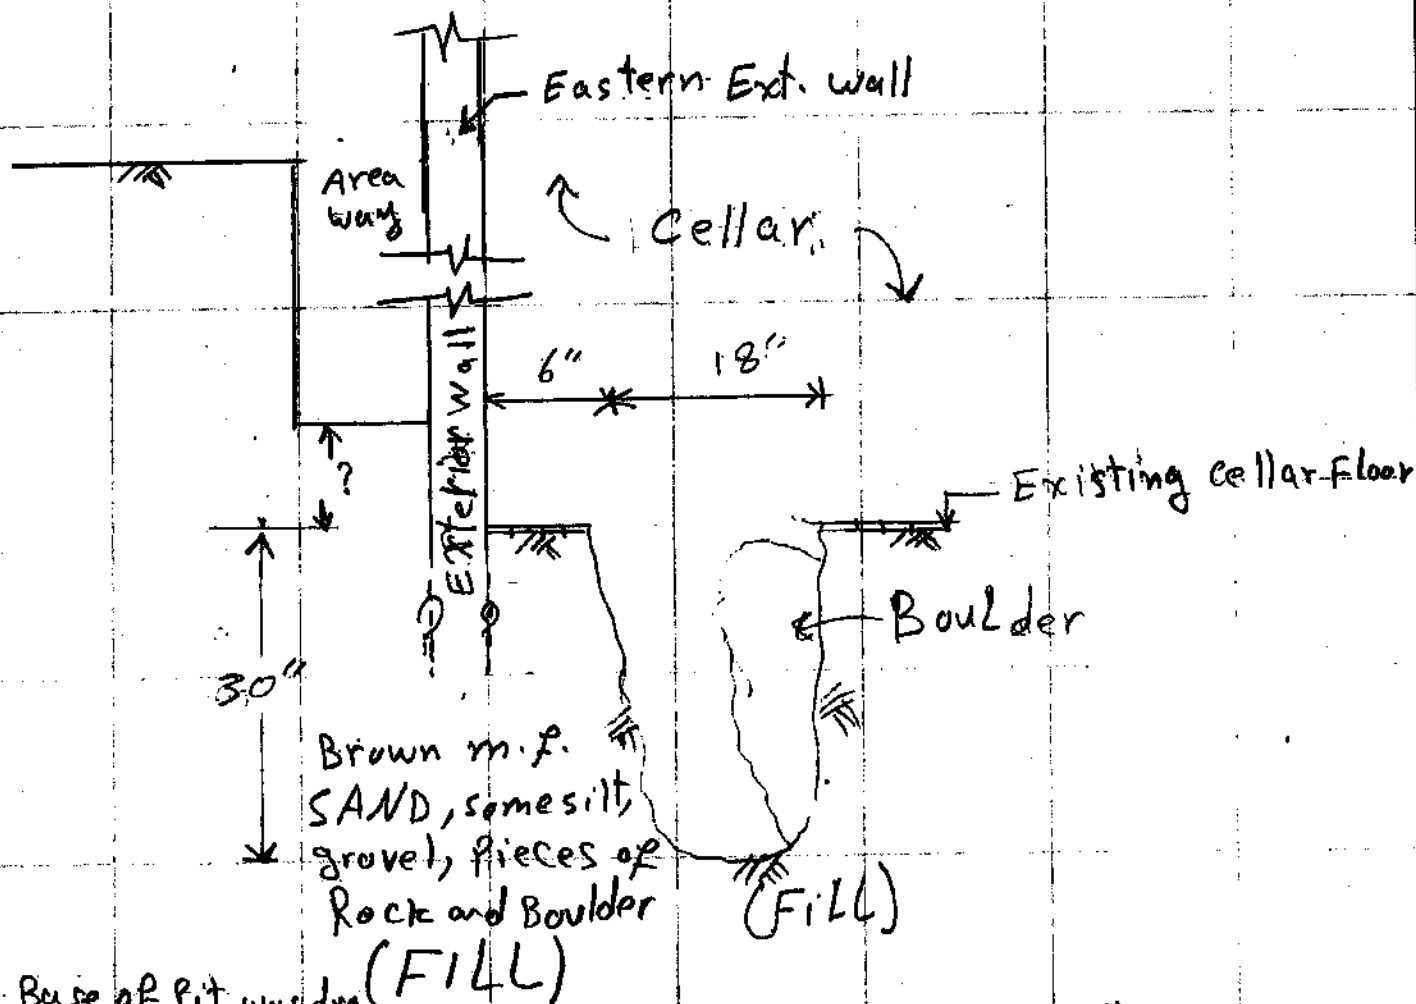 Eastern Ext. wall
Area
way
Cellar
6"
18"
Exterior wall
?
Existing cellar Floor
Boulder
30"
Brown m.f.
SAND, some silt,
gravel, Pieces of
Rock and Boulder
(FILL)
(FILL)
Base of Pit was